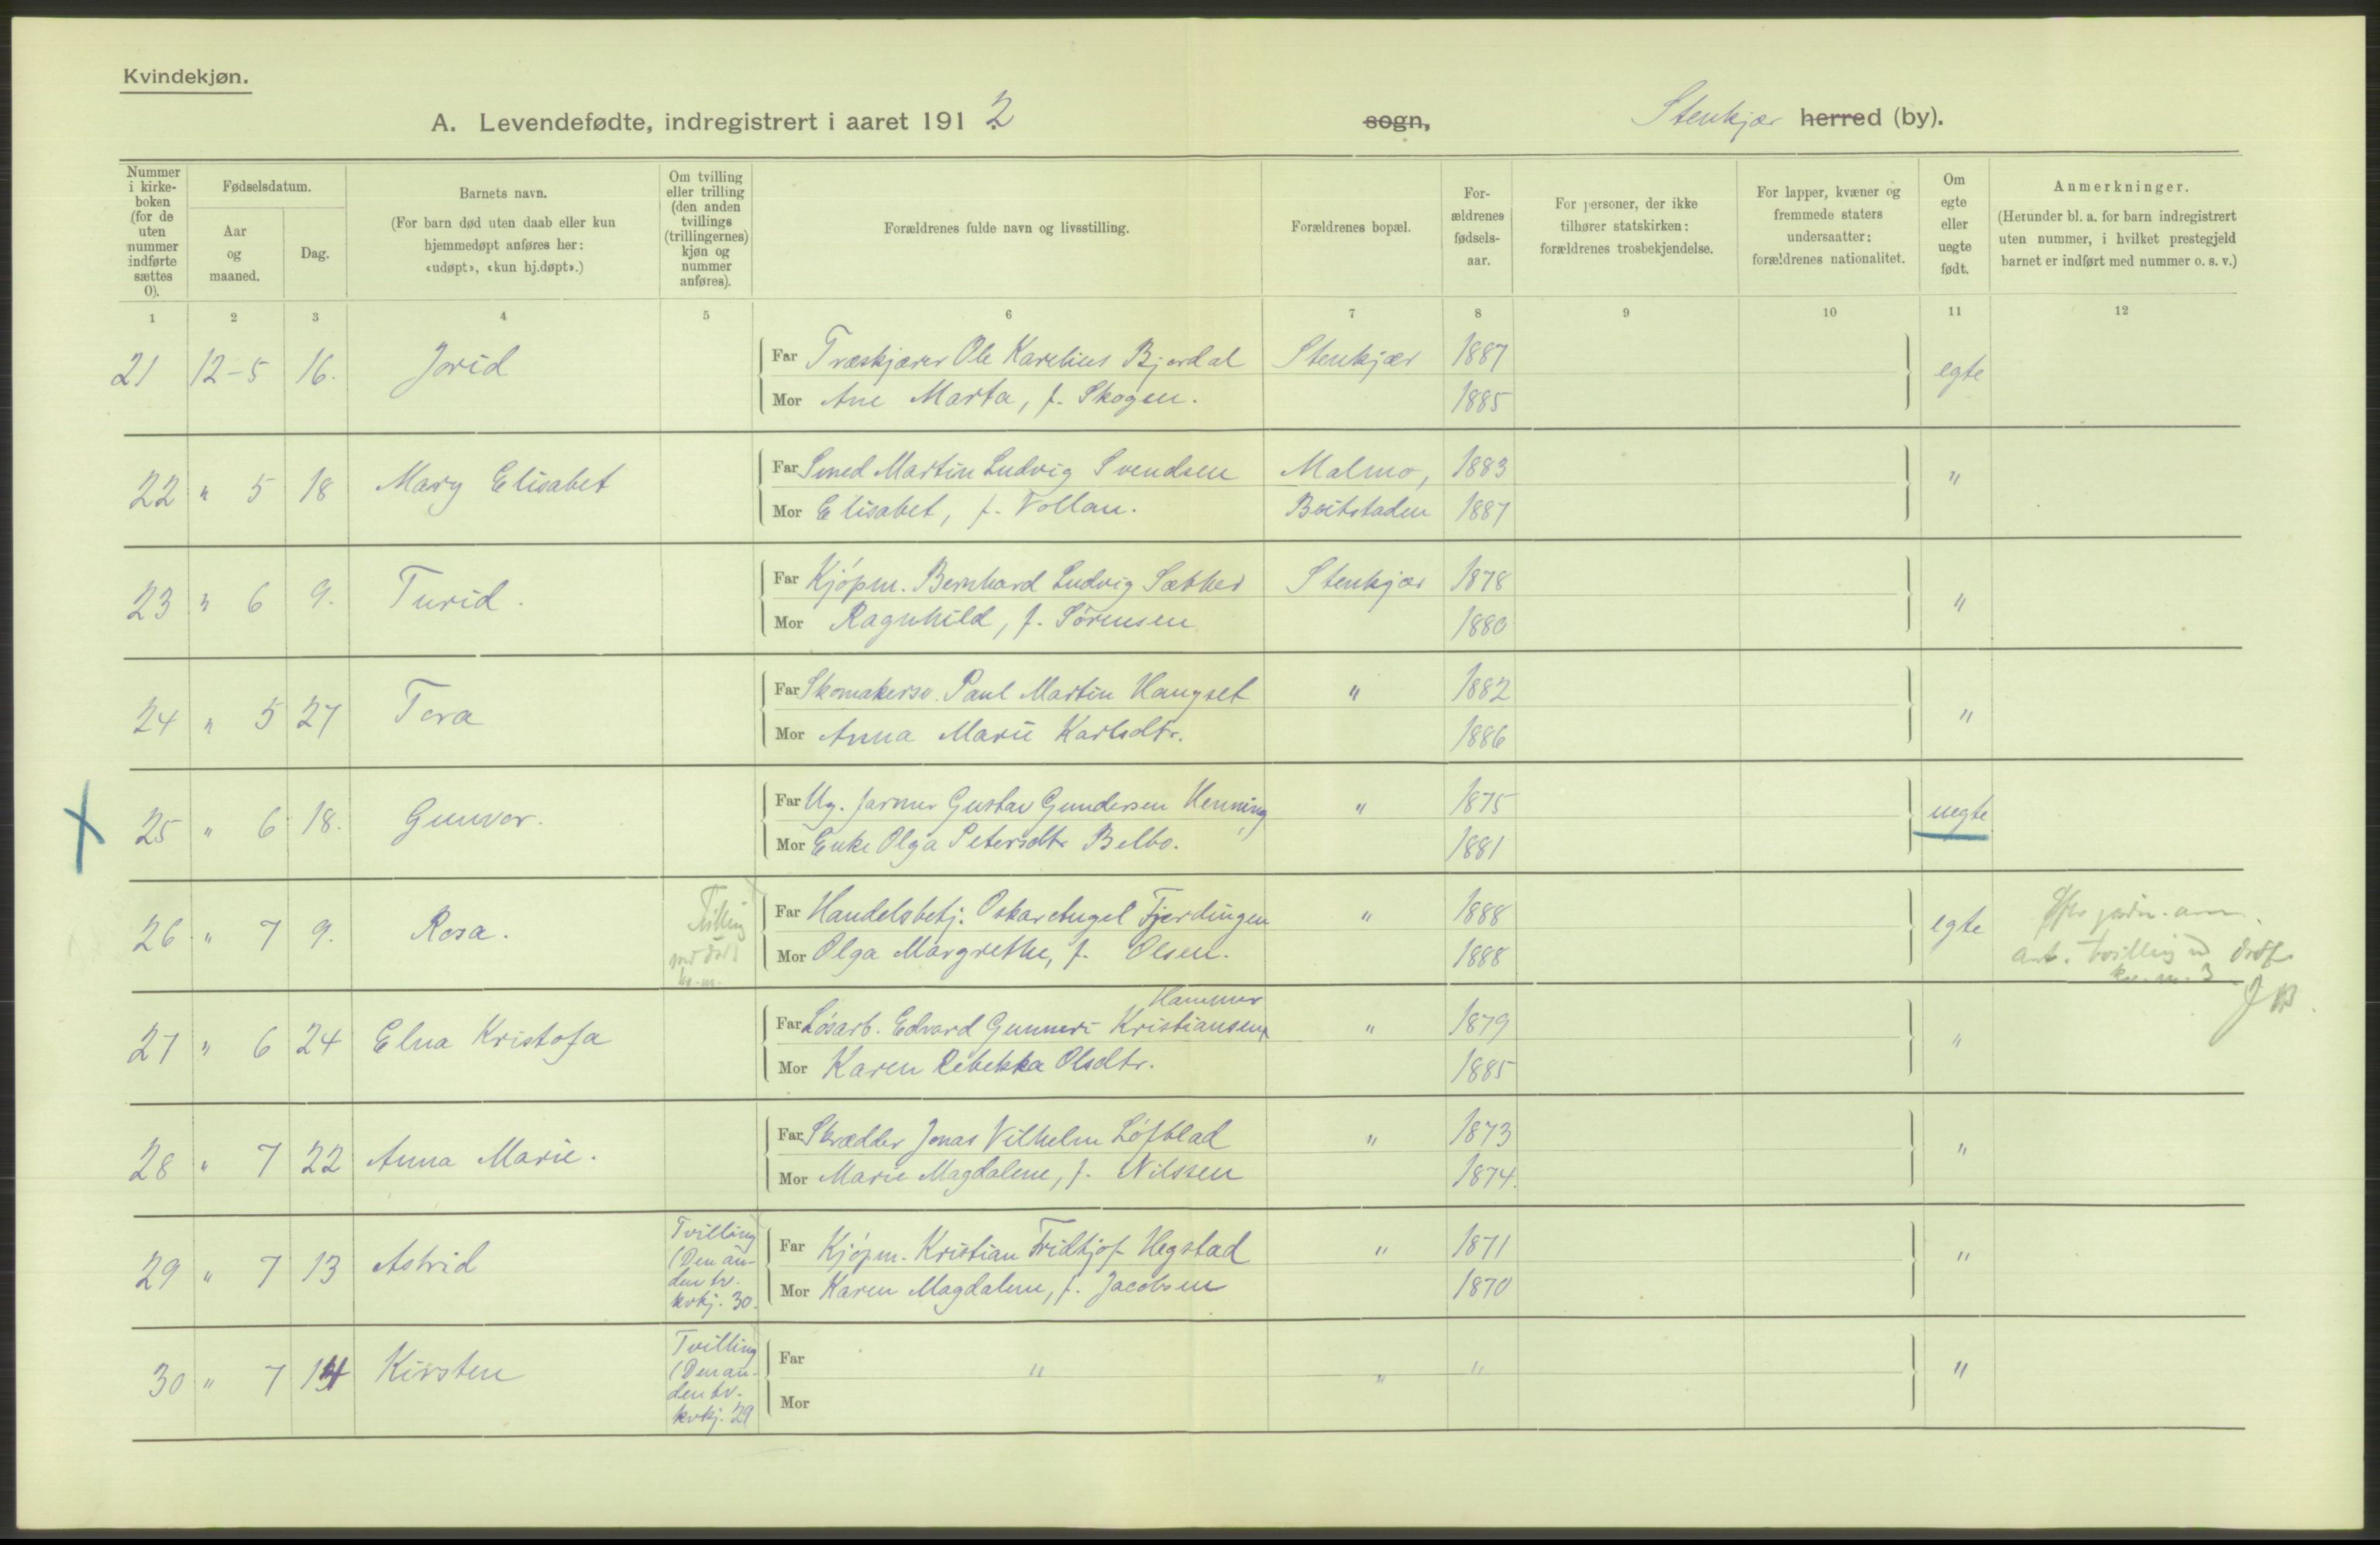 Kvindekjøn.
A. Levendefødte, indregistrert i aaret 1912
sogn,
Stenkjær herred (by).
Nummer i kirke-boken (for de uten nummer indførte sættes 0).
Fødselsdatum.
Aar og maaned.
Dag.
Barnets navn.
(For barn død uten daab eller kun hjemmedøpt anføres her: «udøpt», «kun hj.døpt».)
Om tvilling eller trilling (den anden tvillings (trillingernes) kjøn og nummer anføres).
Forældrenes fulde navn og livsstilling.
Forældrenes bopæl.
For-ældrenes fødsels-aar.
For personer, der ikke tilhører statskirken: forældrenes trosbekjendelse.
For lapper, kvæner og fremmede staters undersaatter: forældrenes nationalitet.
Om egte eller uegte født.
Anmerkninger.
(Herunder bl. a. for barn indregistrert uten nummer, i hvilket prestegjeld barnet er indført med nummer o. s. v.)
1 2 3 4 5 6 7 8 9 10 11 12
21 12-5 16. Jorid Far Træskjærer Ole Karelius Bjerdal Stenkjær 1887 egte
Mor Ane Marta, f. Skogen. 1885
22 " 5 18 Mary Elisabet Far Smed Martin Ludvig Svendsen Malmo, 1883 "
Mor Elisabet, f. Vollan. Beitstaden 1887
23 " 6 9. Turid. Far Kjøpm. Bernhard Ludvig Sæther Stenkjær 1878 "
Mor Ragnhild, f. Sørensen 1880
24 " 5 27 Tora Far Skomakersv. Paul Martin Haugset " 1882 "
Mor Anna Marie Karlsdtr. 1886
25 " 6 18. Gunvor. Far Ug. farmer Gustav Gundersen Henning, " 1875 uegte
Mor Enke Olga Petersdtr Belbo. 1881
26 " 7 9. Rosa. Tvilling Far Handelsbetj. Oskar Angel Fjerdingen " 1888 egte
Mor Olga Margrethe, f. Olsen. 1888
27 " 6 24 Elna Kristofa Far Løsarb. Edvard Gunneri Kristiansen Hammer " 1879 "
Mor Karen Rebekka Olsdtr. 1885
28 " 7 22 Anna Marie. Far Skrædder Jonas Vilhelm Løfblad " 1873 "
Mor Marie Magdalene, f. Nilssen 1874.
29 " 7 13 Astrid Tvilling (Den an-den tv. kvkj. 30. Far Kjøpm. Kristian Fridtjof Hegstad " 1871 "
Mor Karen Magdalene, f. Jacobsen 1870
30 " 7 14 Kirsten Tvilling (Den an-den tv. kvkj. 29 Far " " " "
Mor